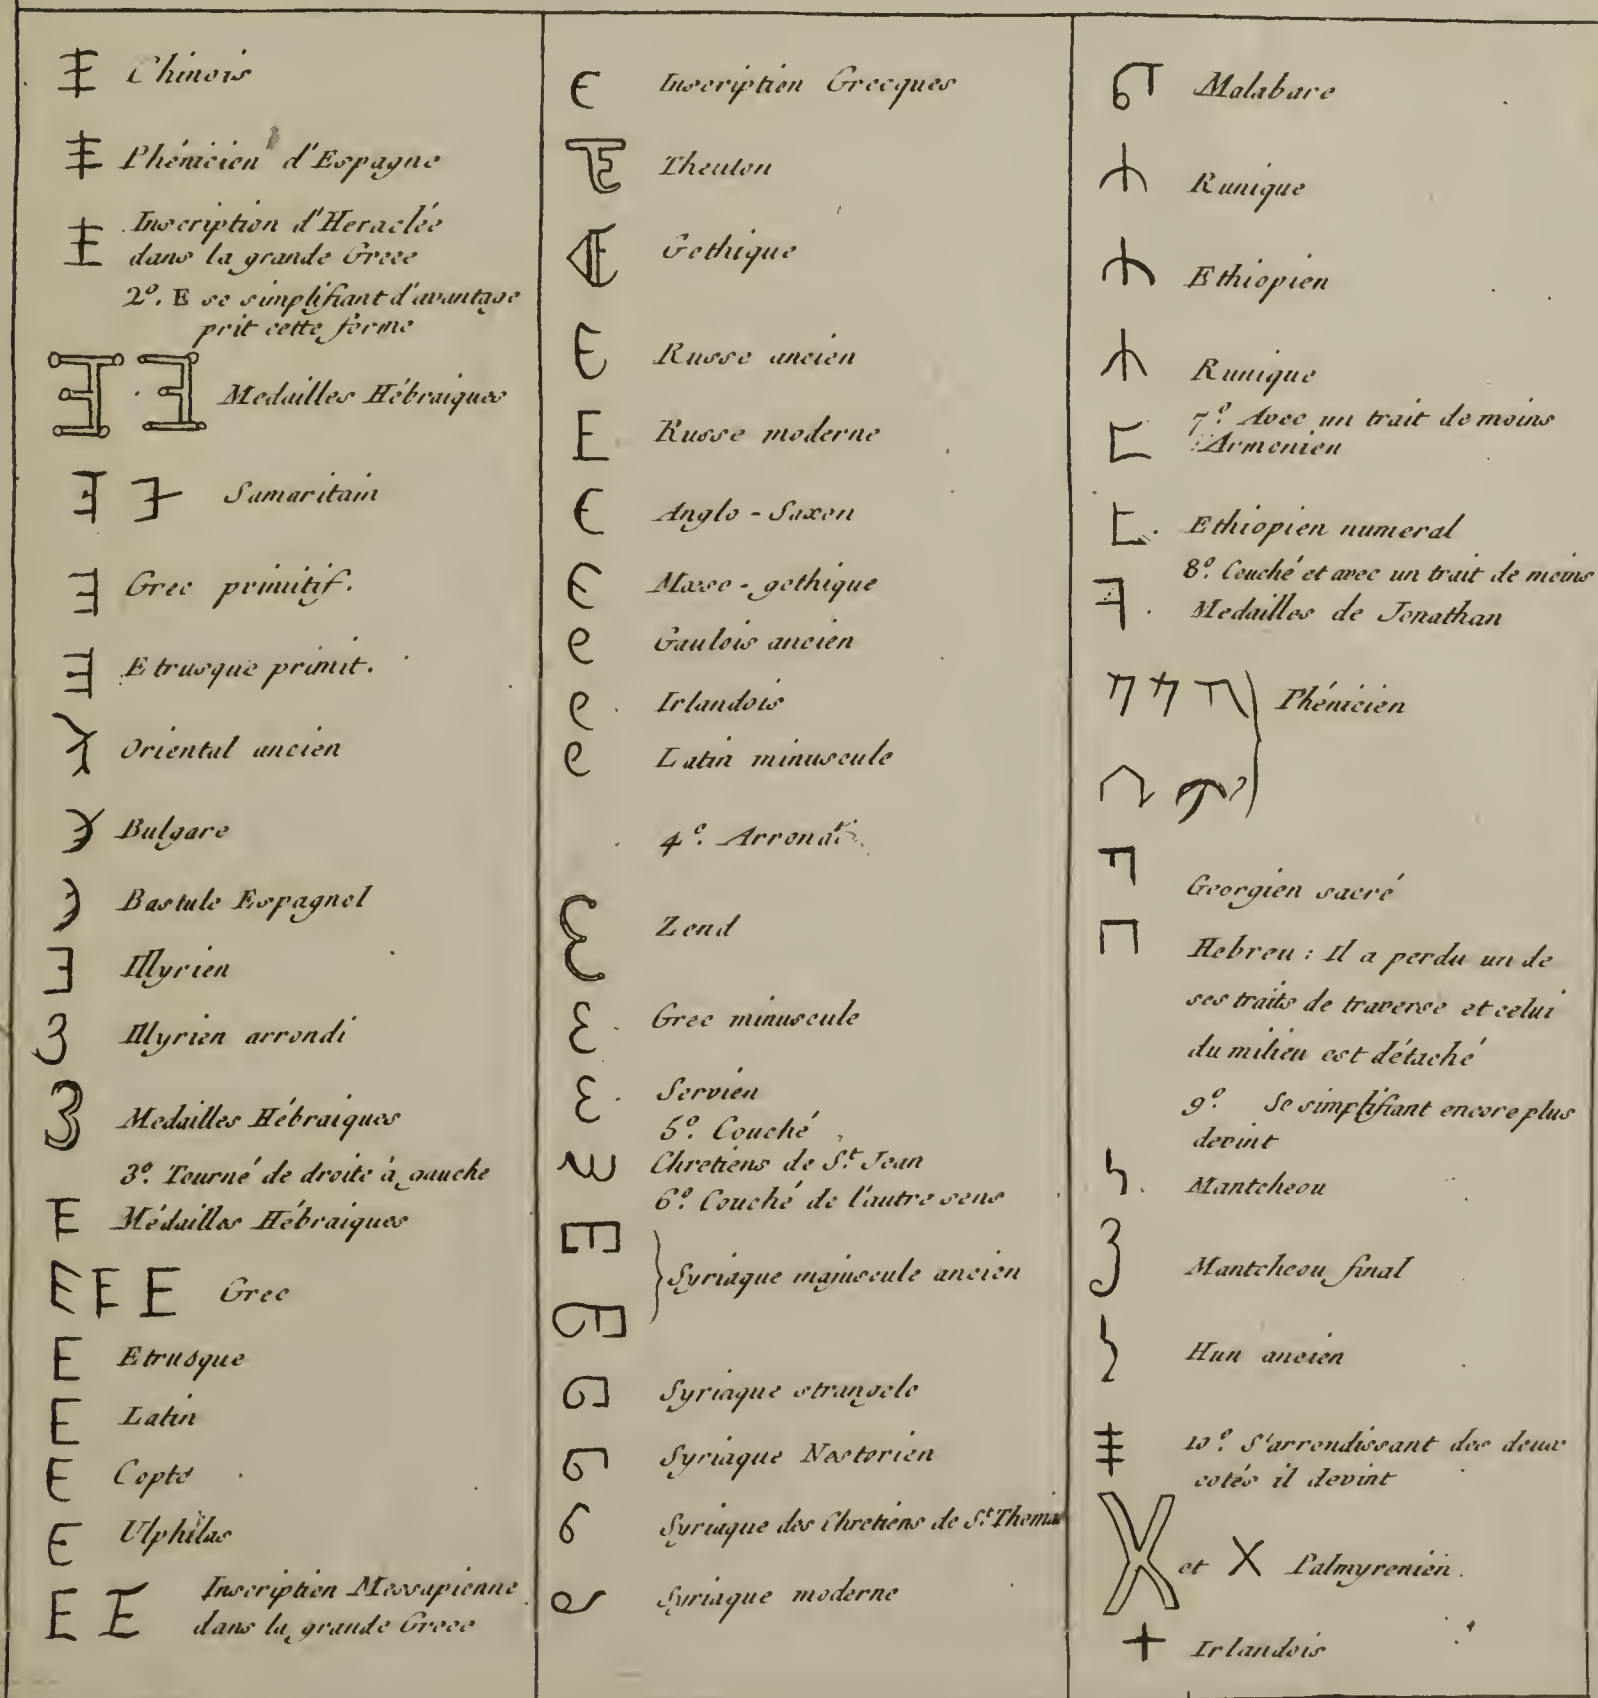 Chinois
Phénicien d'Espagne
Inscription d'Heraclée
dans la grande Grece
2º. E se simplifiant d'avantage
prit cette forme
Medailles Hébraiques
Samaritain
Grec primitif.
Etrusque primit.
Oriental ancien
Bulgare
Bastule Espagnol
Illyrien
Illyrien arrondi
Medailles Hébraiques
3º. Tourné de droite à gauche
Médailles Hébraiques
Grec
Etrusque
Latin
Copte
Ulphilas
Inscription Messapienne
dans la grande Grece
Inscription Grecques
Theuton
Gothique
Russe ancien
Russe moderne
Anglo-Saxon
Mœso-gothique
Gaulois ancien
Irlandois
Latin minuscule
4º. Arrondi
Zend
Grec minuscule
Servien
5º. Couché
Chretiens de St. Jean
6º. Couché de l'autre sens
Syriaque majuscule ancien
Syriaque strangele
Syriaque Nestorien
Syriaque des Chretiens de St. Thomas
Syriaque moderne
Malabare
Runique
Ethiopien
Runique
7º. Avec un trait de moins
Armenien
Ethiopien numeral
8º. Couché et avec un trait de moins
Medailles de Jonathan
Phénicien
Georgien sacré
Hebreu : Il a perdu un de
ses traits de traverse et celui
du milieu est détaché
9º. Se simplifiant encore plus
devint
Mantcheou
Mantcheou final
Hun ancien
10º. S'arrondissant des deux
cotés il devint
et X Palmyrenien.
Irlandois